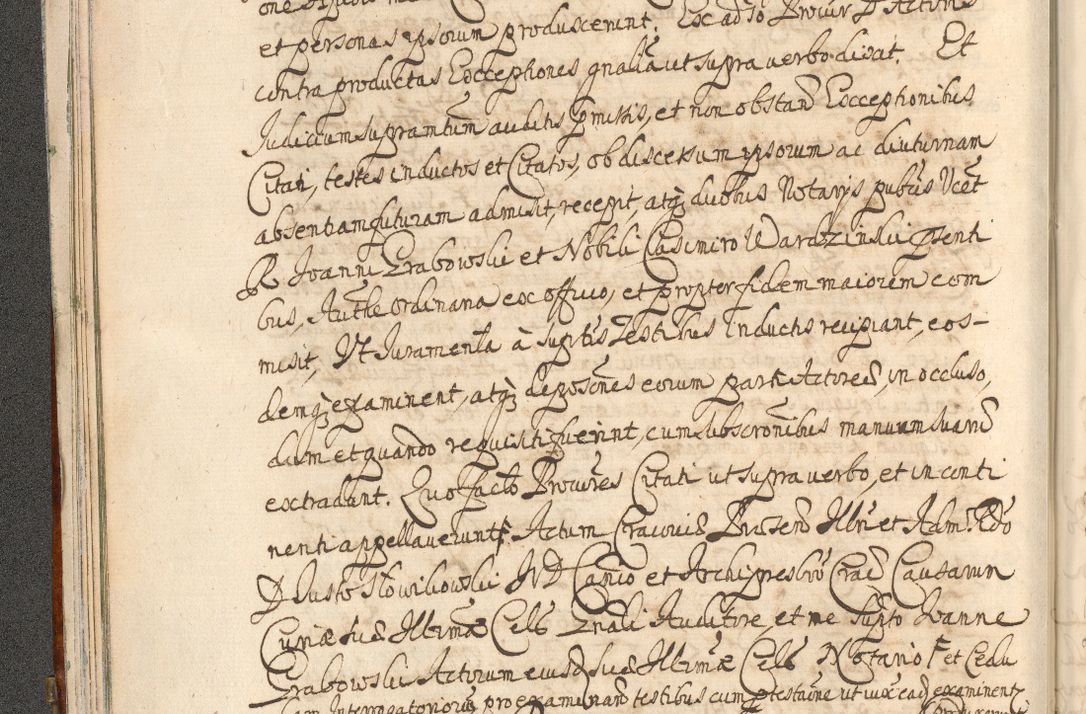 et personas ipsorum produxerunt. Ex adso Procur D Actoris
contra productas Exceptiones gnalia ut supra verbo dixit. Et
Judicium supramtum auditis pmissis, et non obstan Exceptionibus
Citati, testes inductos et Citatos, ob discessum ipsorum ac diuturnam
absentiam futuram admisit, recepit, atq duobus Notarijs pubcis Vcet
R Joanni Grabowski et Nobili Casimiro Wardzinski psenti
bus, Autte ordinaria ex officio, et propter fidem maiorem com
misit, Ut Juramenta à suprtis Testibus inductis recipiant, eos-
demq examinent, atq depositnes eorum parti Actoreæ, in occluso,
dum et quando requisiti fuerint, cum subscronibus manuum suarum
extradant. Quo facto Procures Citati ut supra verbo, et in conti
nenti appellaverunt. Actum Cracoviæ Præsen Illri et Adm. Rdo
D Justo Słowikowski JVD Canco et Archipresbro Crac Causarum
Curiæ suæ Illrmæ Cels Gnali Auditore, et me supto Joanne
Grabowski Actorum eiusd suæ Illrmæ Cels Notario et Cedu
lam Interrogatoriorum pro examinan testibus cum ptestaone ut iux ead examinent